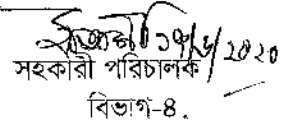 ১৭/৬/২০২০
সহকারী পরিচালক
বিভাগ-৪.